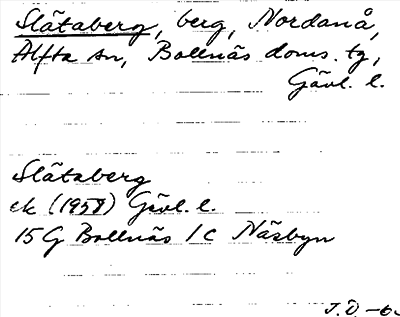 Slätaberg, berg, Nordanå,
Alfta sn, Bollnäs doms. tg,
Gävl. l.
Slätaberg
ek (1958) Gävl. l.
15G Bollnäs 1c Näsbyn
J.D.